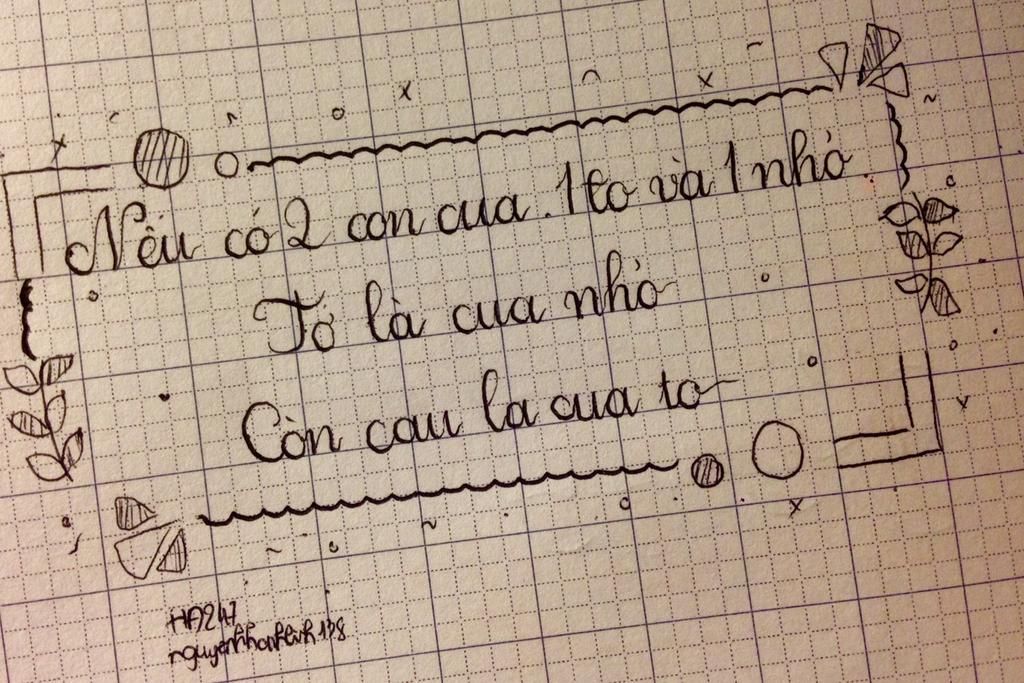 Nếu có 2 con cua. 1 to và 1 nhỏ.
Tớ là cua nhỏ
Còn cau la cua to
HA247